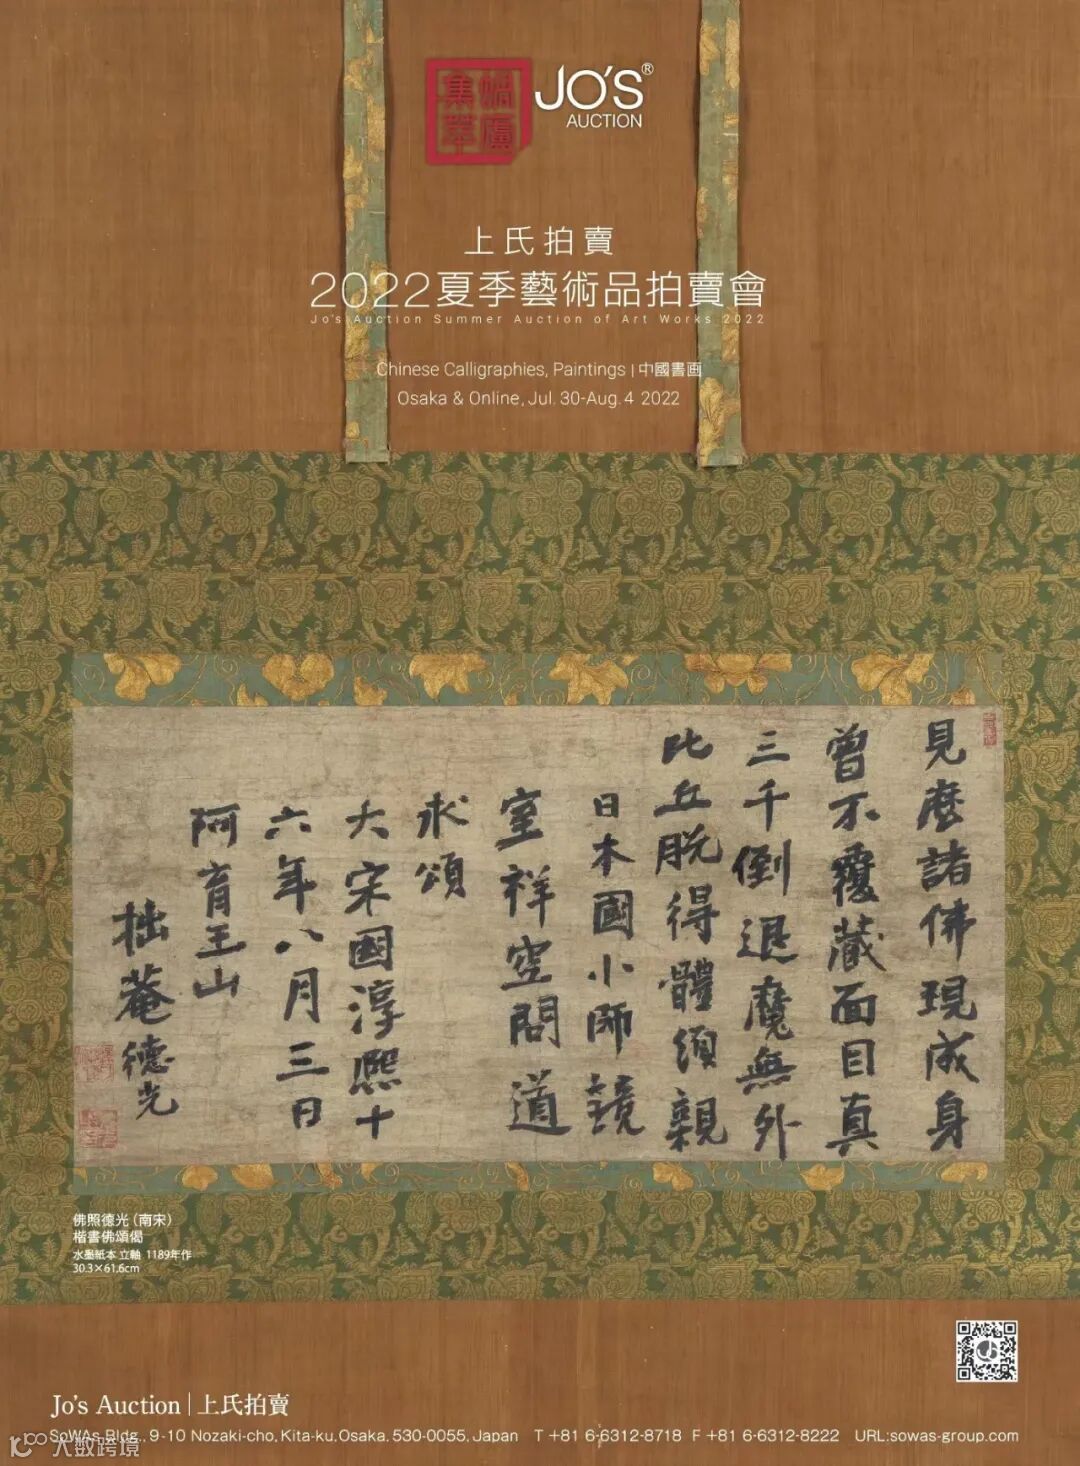 蝸廬
集萃
JO'S®
AUCTION
上氏拍賣
2022夏季藝術品拍賣會
Jo's Auction Summer Auction of Art Works 2022
Chinese Calligraphies, Paintings | 中國書画
Osaka & Online, Jul. 30-Aug. 4 2022
見麼諸佛現成身
曾不覆藏面目真
三千倒退魔無外
比丘脫得體須親
日本國小師鏡
室祥空問道
求頌
大宋國淳熙十
六年八月三日
阿育王山
拙菴德光
佛照德光(南宋)
楷書佛頌偈
水墨紙本 立軸 1189年作
30.3×61.6cm
Jo's Auction | 上氏拍賣
SoWAs Bldg., 9-10 Nozaki-cho, Kita-ku, Osaka, 530-0055, Japan T +81 6-6312-8718 F +81 6-6312-8222 URL:sowas-group.com
大数跨境